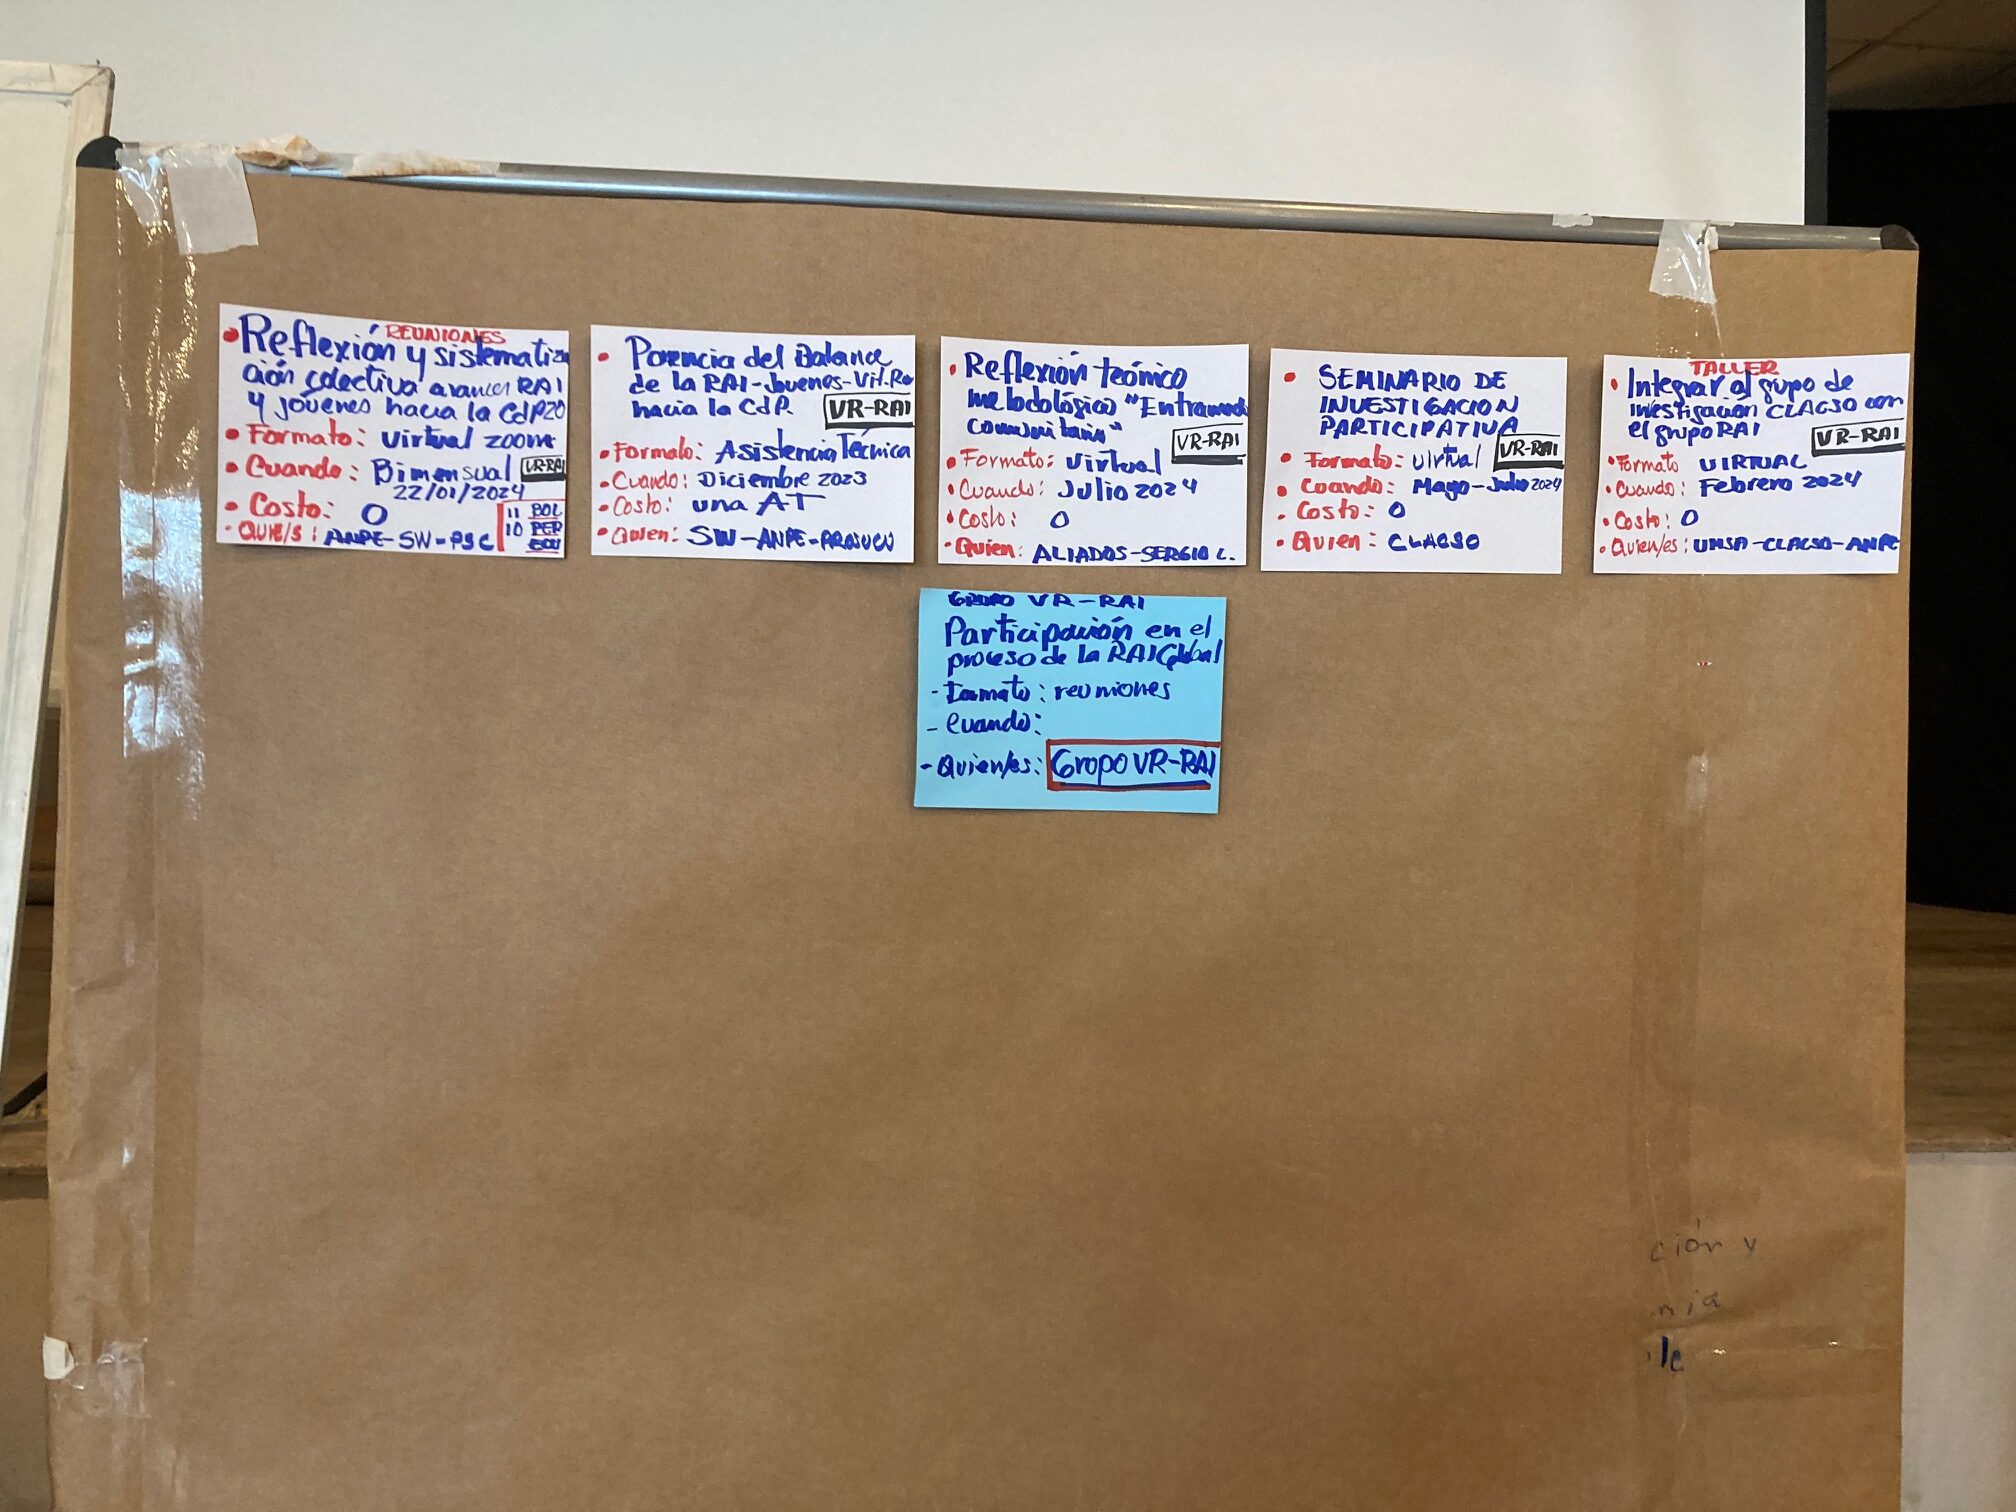 REUNIONES
• Reflexión y sistematiza
ción colectiva avances RAI
y jóvenes hacia la CdP20
• Formato: virtual zoom
• Cuando: Bimensual VR-RAI
22/01/2024
• Costo: 0
11 BOL
10 PER
ECU
• QUIE/S: ANPE-SW-PSC
• Ponencia del Balance
de la RAI-Jovenes-Vit.Ru
hacia la CdP. VR-RAI
• Formato: Asistencia Técnica
• Cuando: Diciembre 2023
• Costo: una AT
• Quien: SW-ANPE-PROSUCO
• Reflexión teórico
metodológico "Entramado
comunitario" VR-RAI
• Formato: Virtual
• Cuando: Julio 2024
• Costo: 0
• Quien: ALIADOS-SERGIO L.
• SEMINARIO DE
INVESTIGACION
PARTICIPATIVA
VR-RAI
• Formato: virtual
• Cuando: Mayo-Julio 2024
• Costo: 0
• Quien: CLACSO
TALLER
• Integrar al grupo de
investigación CLACSO con
el grupo RAI VR-RAI
• Formato VIRTUAL
• Cuando: Febrero 2024
• Costo: 0
• Quien/es: UNSA-CLACSO-ANPE
GRUPO VR-RAI
Participación en el
proceso de la RAI Global
- Formato: reuniones
- Cuando:
- Quien/es: Grupo VR-RAI
ción y
nia
le